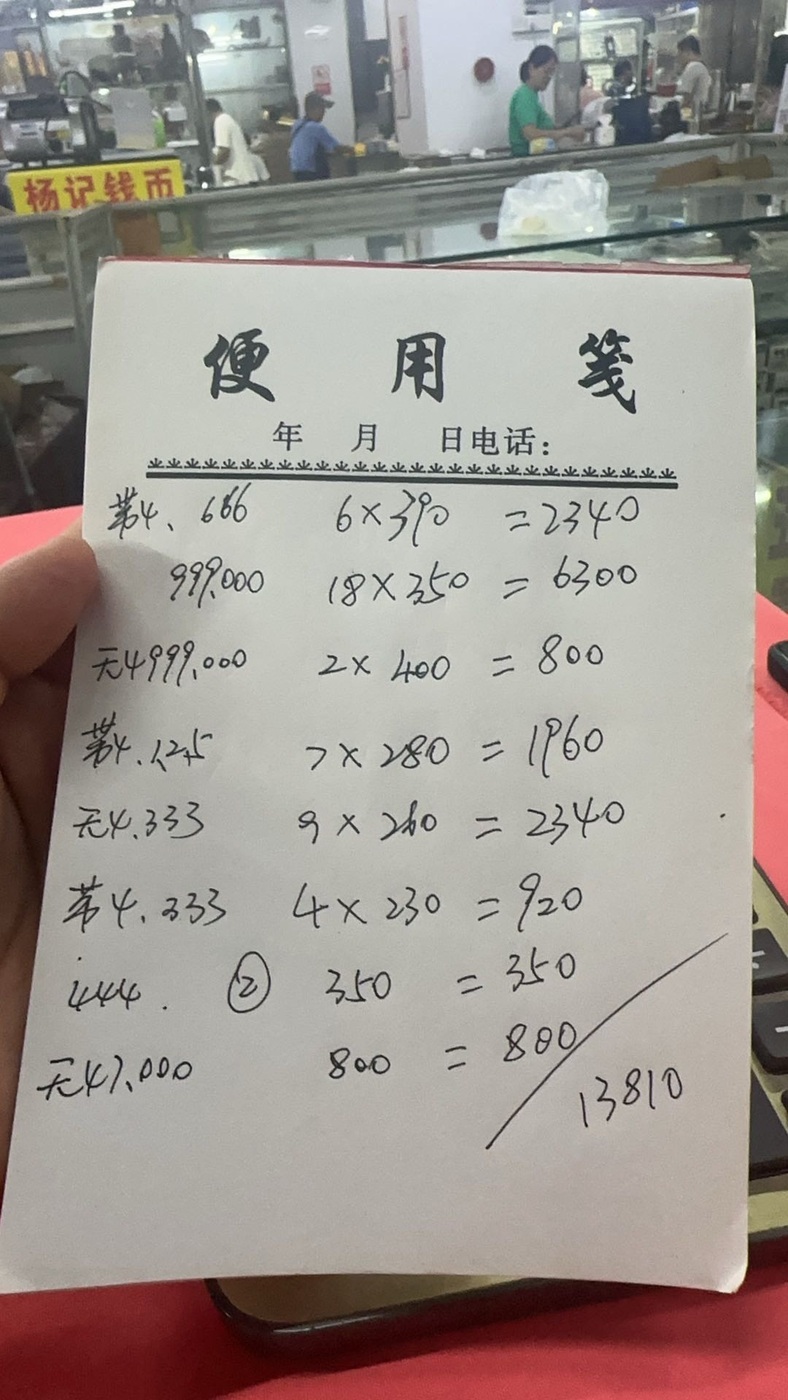 杨记钱币
便用笺
年 月 日电话:
带4、666 6×390 =2340
999.000 18×350 = 6300
无4999.000 2× 400 = 800
带4.1,2,5 7 × 280 = 1960
无4.333 9 × 260 = 2340
带4.333 4 × 230 = 920
444. ② 350 = 350
无47.000 800 = 800
13810